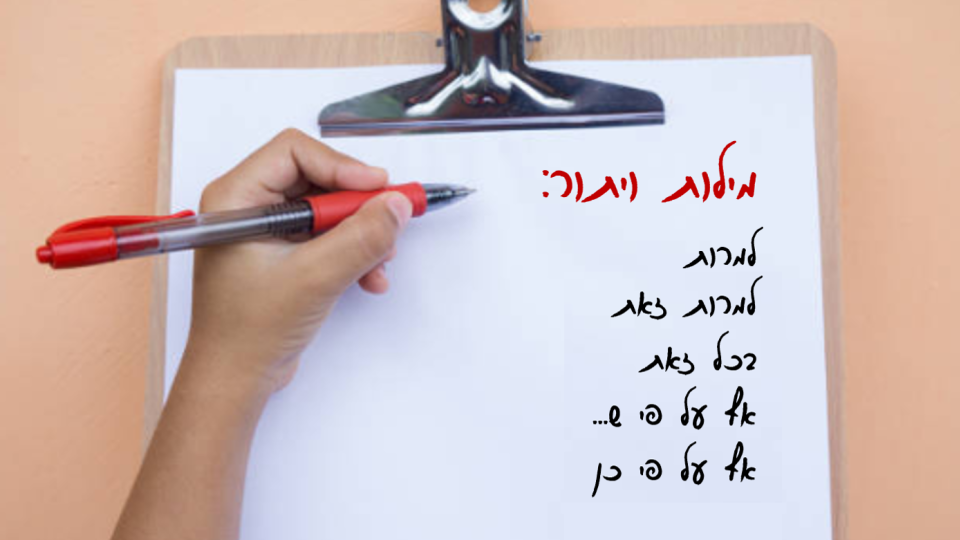 מילות ויתור:
למרות
למרות זאת
בכל זאת
אף על פי ש...
אף על פי כן